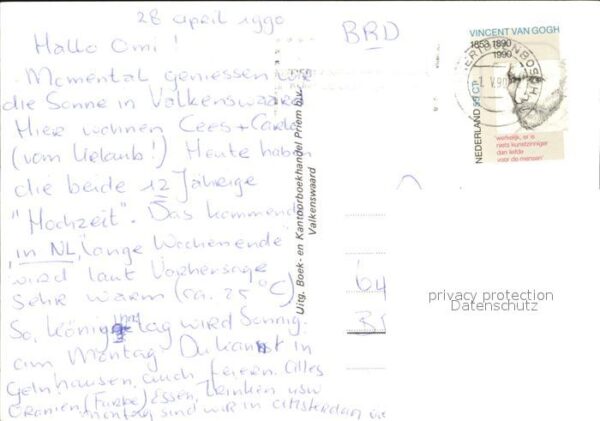 28 April 1990
Hallo Omi!
Momental geniessen wir
die Sonne in Valkenswaard
Hier wohnen Cees + Carla
(vom Urlaub!) Heute haben
die beide 12 Jährige
"Hochzeit". Das kommende
"in NL, lange Wochenende"
wird laut Vorhersage
Sehr warm (ca. 25 °C)
So, König tag wird Sonnig.
am Montag Du kannst in
Gelnhausen auch feiern. Alles
Oranien (Farbe) Essen, Trinken usw
montag sind wir in Amsterdam
Uitg. Boek- en Kantoorboekhandel Priem b.v.
Valkenswaard
BRD
64
VINCENT VAN GOGH
1853 1890
1990
NEDERLAND 55 CT
werkelijk, er is
niets kunstzinniger
dan liefde
voor de mensen
privacy protection
Datenschutz